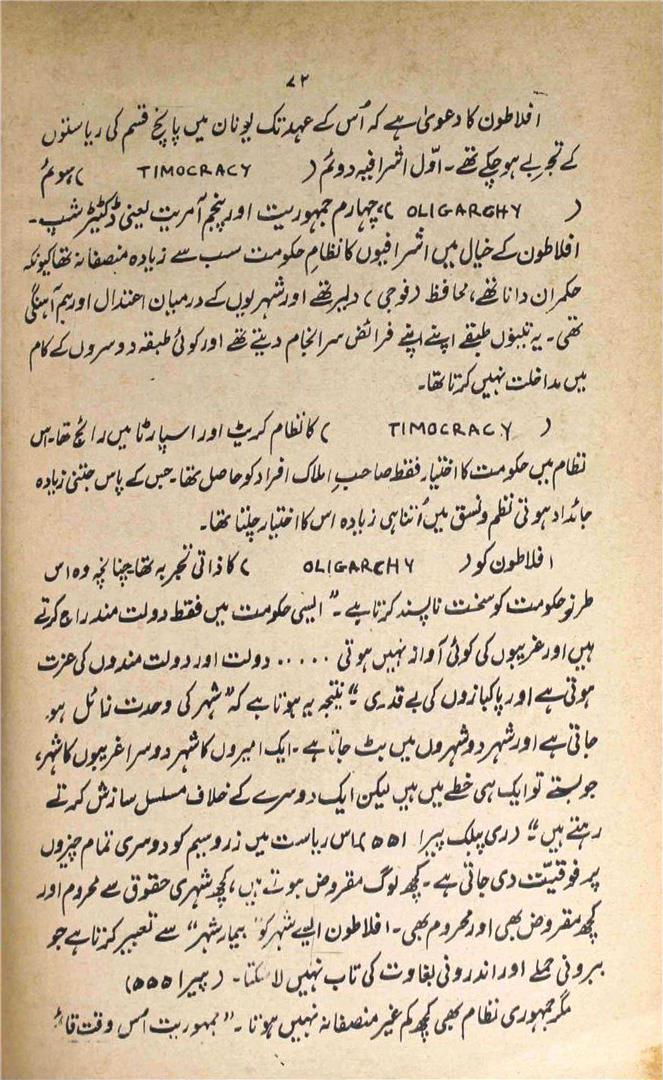 ۷۲
افلاطون کا دعویٰ ہے کہ اُس کے عہد تک یونان میں پانچ قسم کی ریاستوں
کے تجربے ہو چکے تھے۔ اوّل اشرافیہ دوئم ( TIMOCRACY ) سوئم
( OLIGARCHY )، چہارم جمہوریت اور پنجم آمریت یعنی ڈکٹیٹر شپ۔
افلاطون کے خیال میں اشرافیوں کا نظامِ حکومت سب سے زیادہ منصفانہ تھا کیونکہ
حکمران دانا تھے، محافظ (فوجی) دلیر تھے اور شہریوں کے درمیان اعتدال اور ہم آہنگی
تھی۔ یہ تینوں طبقے اپنے اپنے فرائض سرانجام دیتے تھے اور کوئی طبقہ دوسروں کے کام
میں مداخلت نہیں کرتا تھا۔
( TIMOCRACY ) کا نظام کریٹ اور اسپارٹا میں رائج تھا۔ اس
نظام میں حکومت کا اختیار فقط صاحبِ املاک افراد کو حاصل تھا۔ جس کے پاس جتنی زیادہ
جائداد ہوتی نظم و نسق میں اُتنا ہی زیادہ اس کا اختیار چلتا تھا۔
افلاطون کو ( OLIGARCHY ) کا ذاتی تجربہ تھا چنانچہ وہ اس
طرزِ حکومت کو سخت ناپسند کرتا ہے۔ " ایسی حکومت میں فقط دولت مند راج کرتے
ہیں اور غریبوں کی کوئی آواز نہیں ہوتی ..... دولت اور دولت مندوں کی عزت
ہوتی ہے اور پاکبازوں کی بے قدری " نتیجہ یہ ہوتا ہے کہ " شہر کی وحدت زائل ہو
جاتی ہے اور شہر دو شہروں میں بٹ جاتا ہے۔ ایک امیروں کا شہر دوسرا غریبوں کا شہر،
جو بستے تو ایک ہی خطے میں ہیں لیکن ایک دوسرے کے خلاف مسلسل سازش کرتے
رہتے ہیں " (ری پبلک پیرا ۵۵۱) اس ریاست میں زر و سیم کو دوسری تمام چیزوں
پر فوقیّت دی جاتی ہے۔ کچھ لوگ مقروض ہوتے ہیں، کچھ شہری حقوق سے محروم اور
کچھ مقروض بھی اور محروم بھی۔ افلاطون ایسے شہر کو " بیمار شہر " سے تعبیر کرتا ہے جو
بیرونی حملے اور اندرونی بغاوت کی تاب نہیں لا سکتا۔ (پیرا ۵۵۵)
مگر جمہوری نظام بھی کچھ کم غیر منصفانہ نہیں ہوتا۔ " جمہوریت اُس وقت قائم